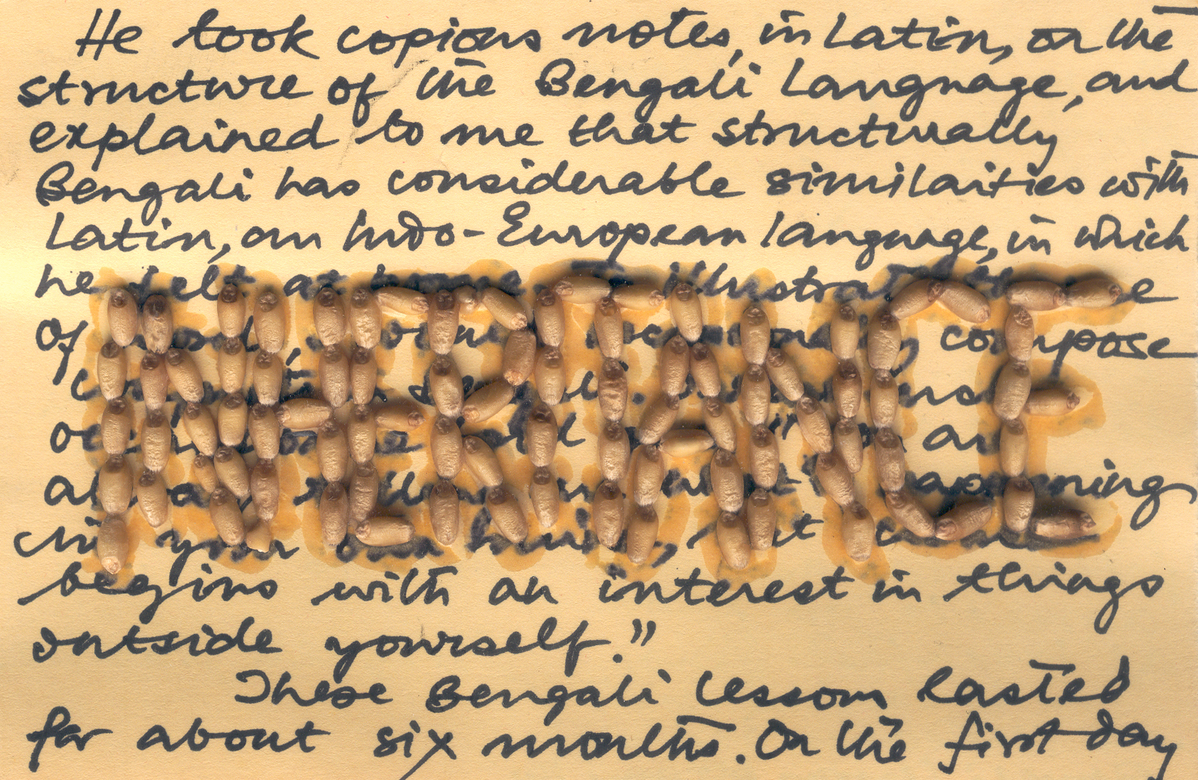 He took copious notes, in Latin, on the
structure of the Bengali Language, and
explained to me that structurally
Bengali has considerable similarities with
Latin, an Indo-European language, in which
he felt at home. illustrate
Of words, occasionally compose
INHERITANCE
always happening
in your own mind, but
begins with an interest in things
outside yourself."
These Bengali lessons lasted
for about six months. On the first day